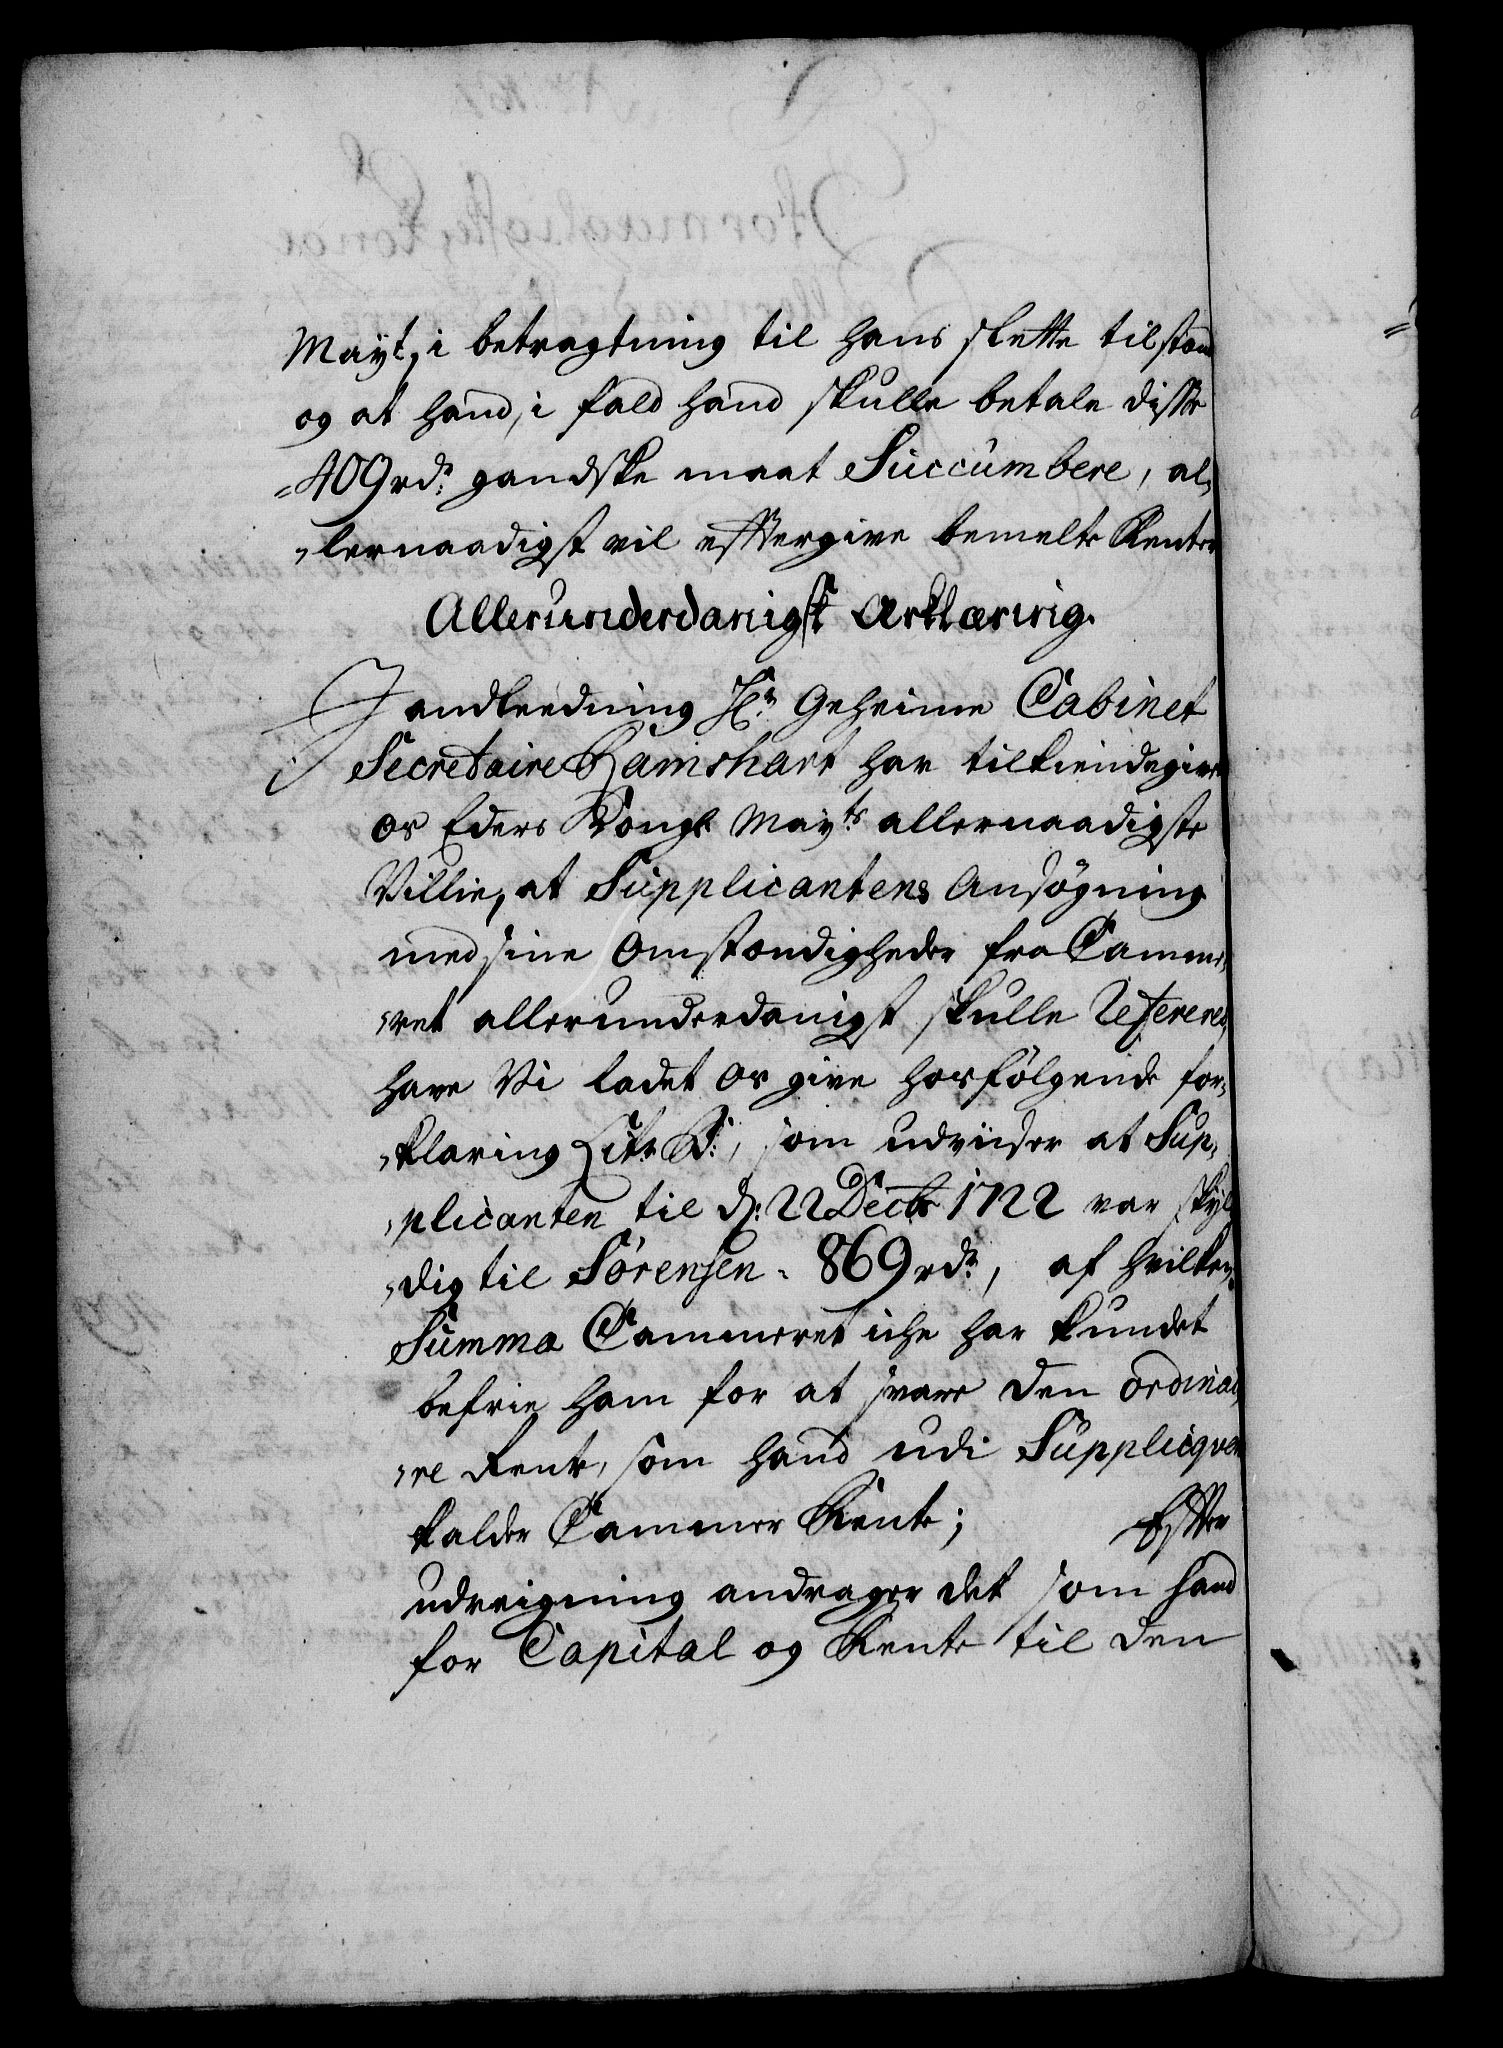 Mayt, i betragtning til hans slette tilstand
og at hand, i fald hand skulle betale disse
409 rdr: gandske maat Succumbere, al-
lernaadigst vil efftergive bemelte Renter
Allerunderdanigst Ærklæring.
I andledning Hr: Geheime Cabinet
Secretaire Ramshart har tilkiendegivet
os Eders Kongl Mayts allernaadigste
Villie, at Supplicantens Ansøgning
med sine Omstændigheder fra Camme-
ret allerunderdanigst skulle Refereres,
have Vi ladet os give hosfølgende for-
klaring Litr B:, som udviiser at Sup-
plicanten til d: 22 Decbr 1722 var skyl-
dig til Sörensen 869 rdr, af hvilken
Summa Cammeret iche har kundet
befrie ham for at svare den ordinai-
re Rente, som hand udi Supplicqven
kalder Cammer Rente; Effter
udreigning andrager det som hand
for Capital og Rente til den